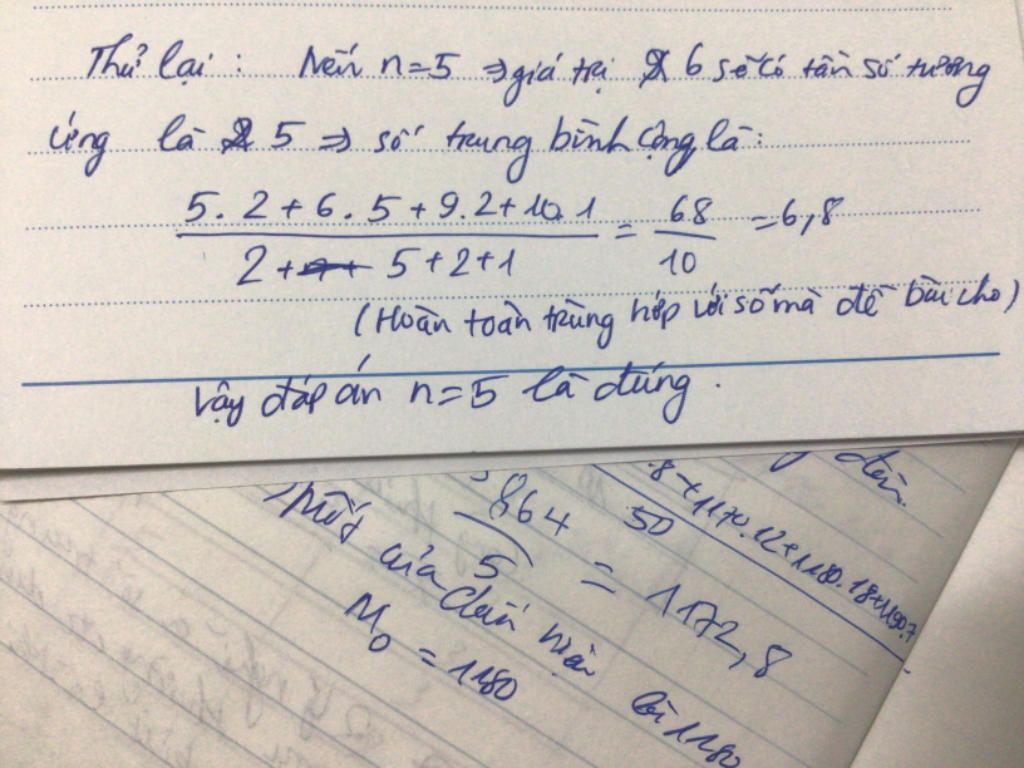 Thử lại : Nếu n=5 ⇒ giá trị 6 sẽ có tần số tương
ứng là 5 ⇒ số trung bình cộng là:
5. 2 + 6. 5 + 9. 2 + 10. 1 / 2 + 5 + 2 + 1 = 68 / 10 = 6,8
(Hoàn toàn trùng hợp với số mà đề bài cho)
Vậy đáp án n=5 là đúng.
đèn.
.8 + 1170.12 + 1180.18 + 1190.7
50
864 / 5 = 1172,8
Mốt của dấu
là 1180
M₀ = 1180